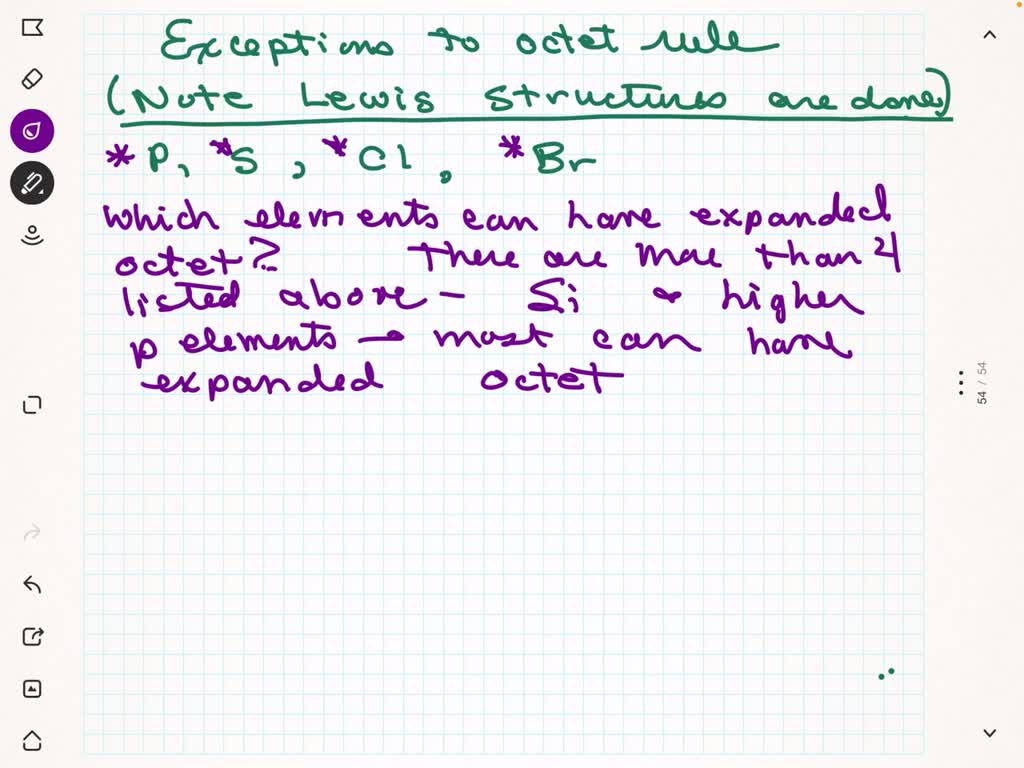 Exceptions to octet rule
(Note Lewis structures are done)
* P, * S, * Cl, * Br
which elements can have expanded
octet? There are more than 4
listed above - Si & higher
p elements → most can have
expanded octet
54 / 54